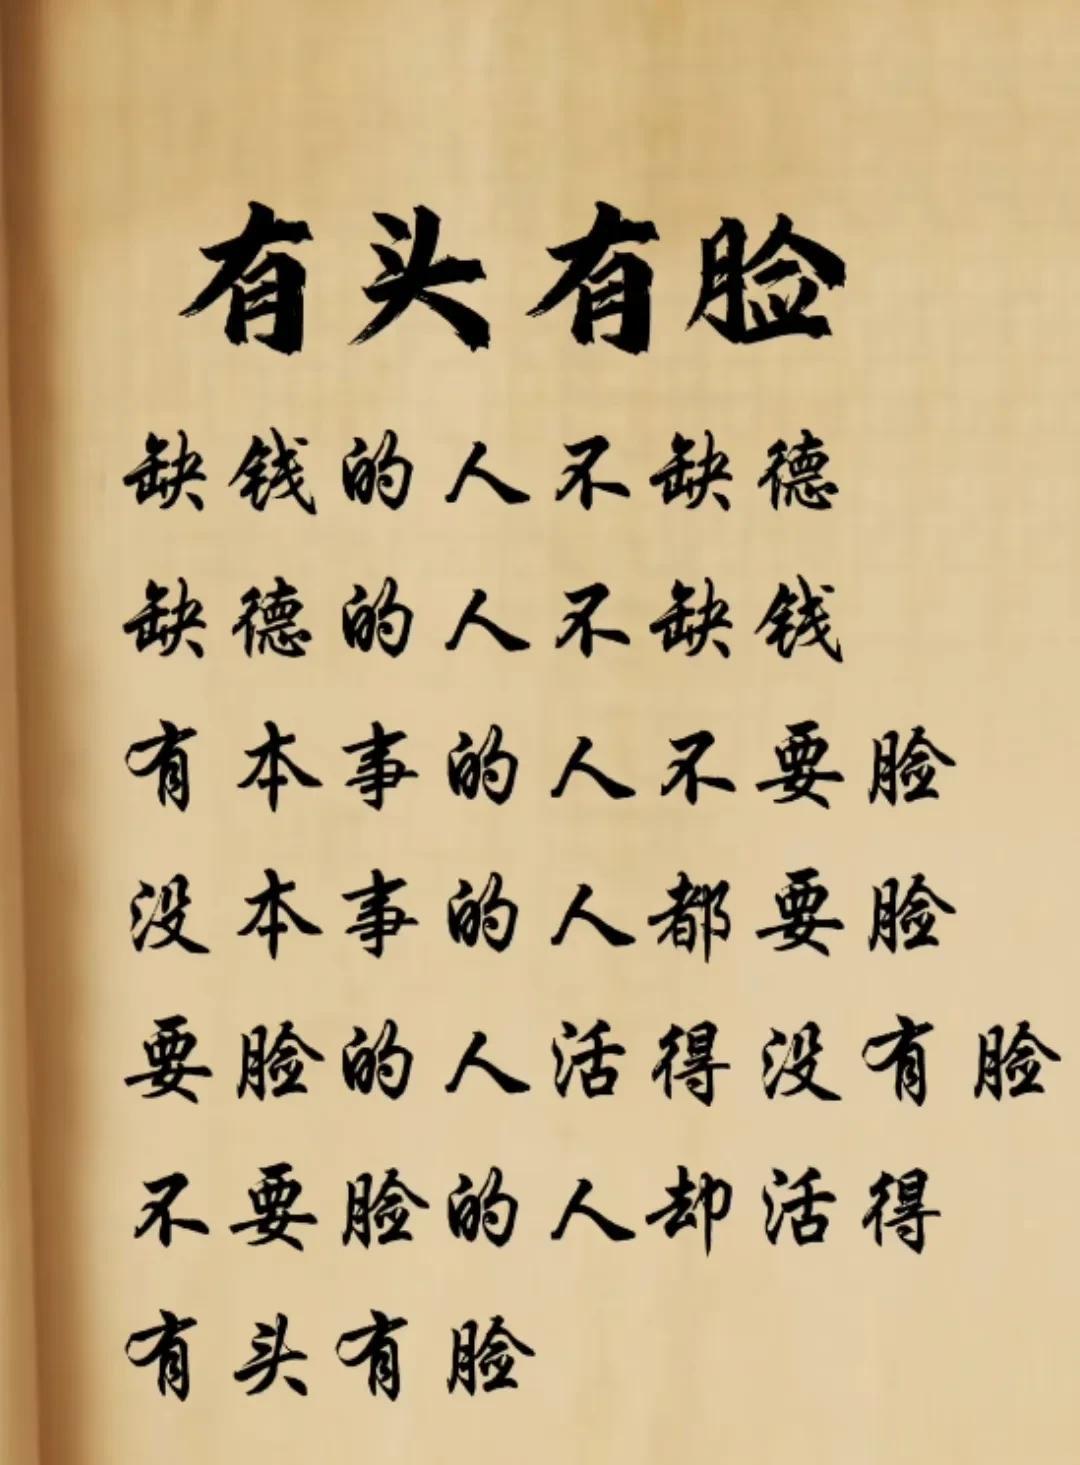 有头有脸
缺钱的人不缺德
缺德的人不缺钱
有本事的人不要脸
没本事的人都要脸
要脸的人活得没有脸
不要脸的人却活得
有头有脸